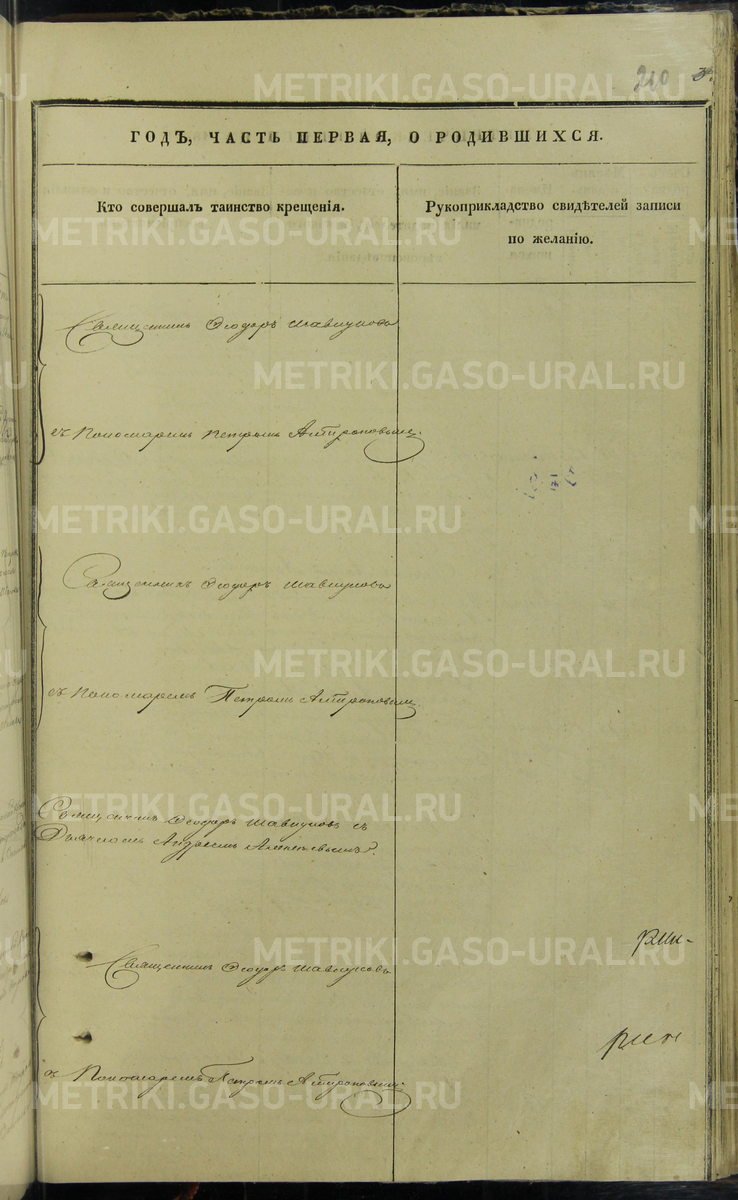 210 3.
ГОДЪ, ЧАСТЬ ПЕРВАЯ, О РОДИВШИХСЯ.
Кто совершалъ таинство крещенія.
Рукоприкладство свидѣтелей записи
по желанію.
Священникъ Ѳеодоръ Шавкуновъ
съ Пономаремъ Петромъ Антроповымъ.
Священникъ Ѳеодоръ Шавкуновъ
съ Пономаремъ Петромъ Антроповымъ.
Священникъ Ѳеодоръ Шавкуновъ съ
Дьячкомъ Андреемъ
Священникъ Ѳеодоръ Шавкуновъ
съ Пономаремъ Петромъ Антроповымъ.
METRIKI.GASO-URAL.RU